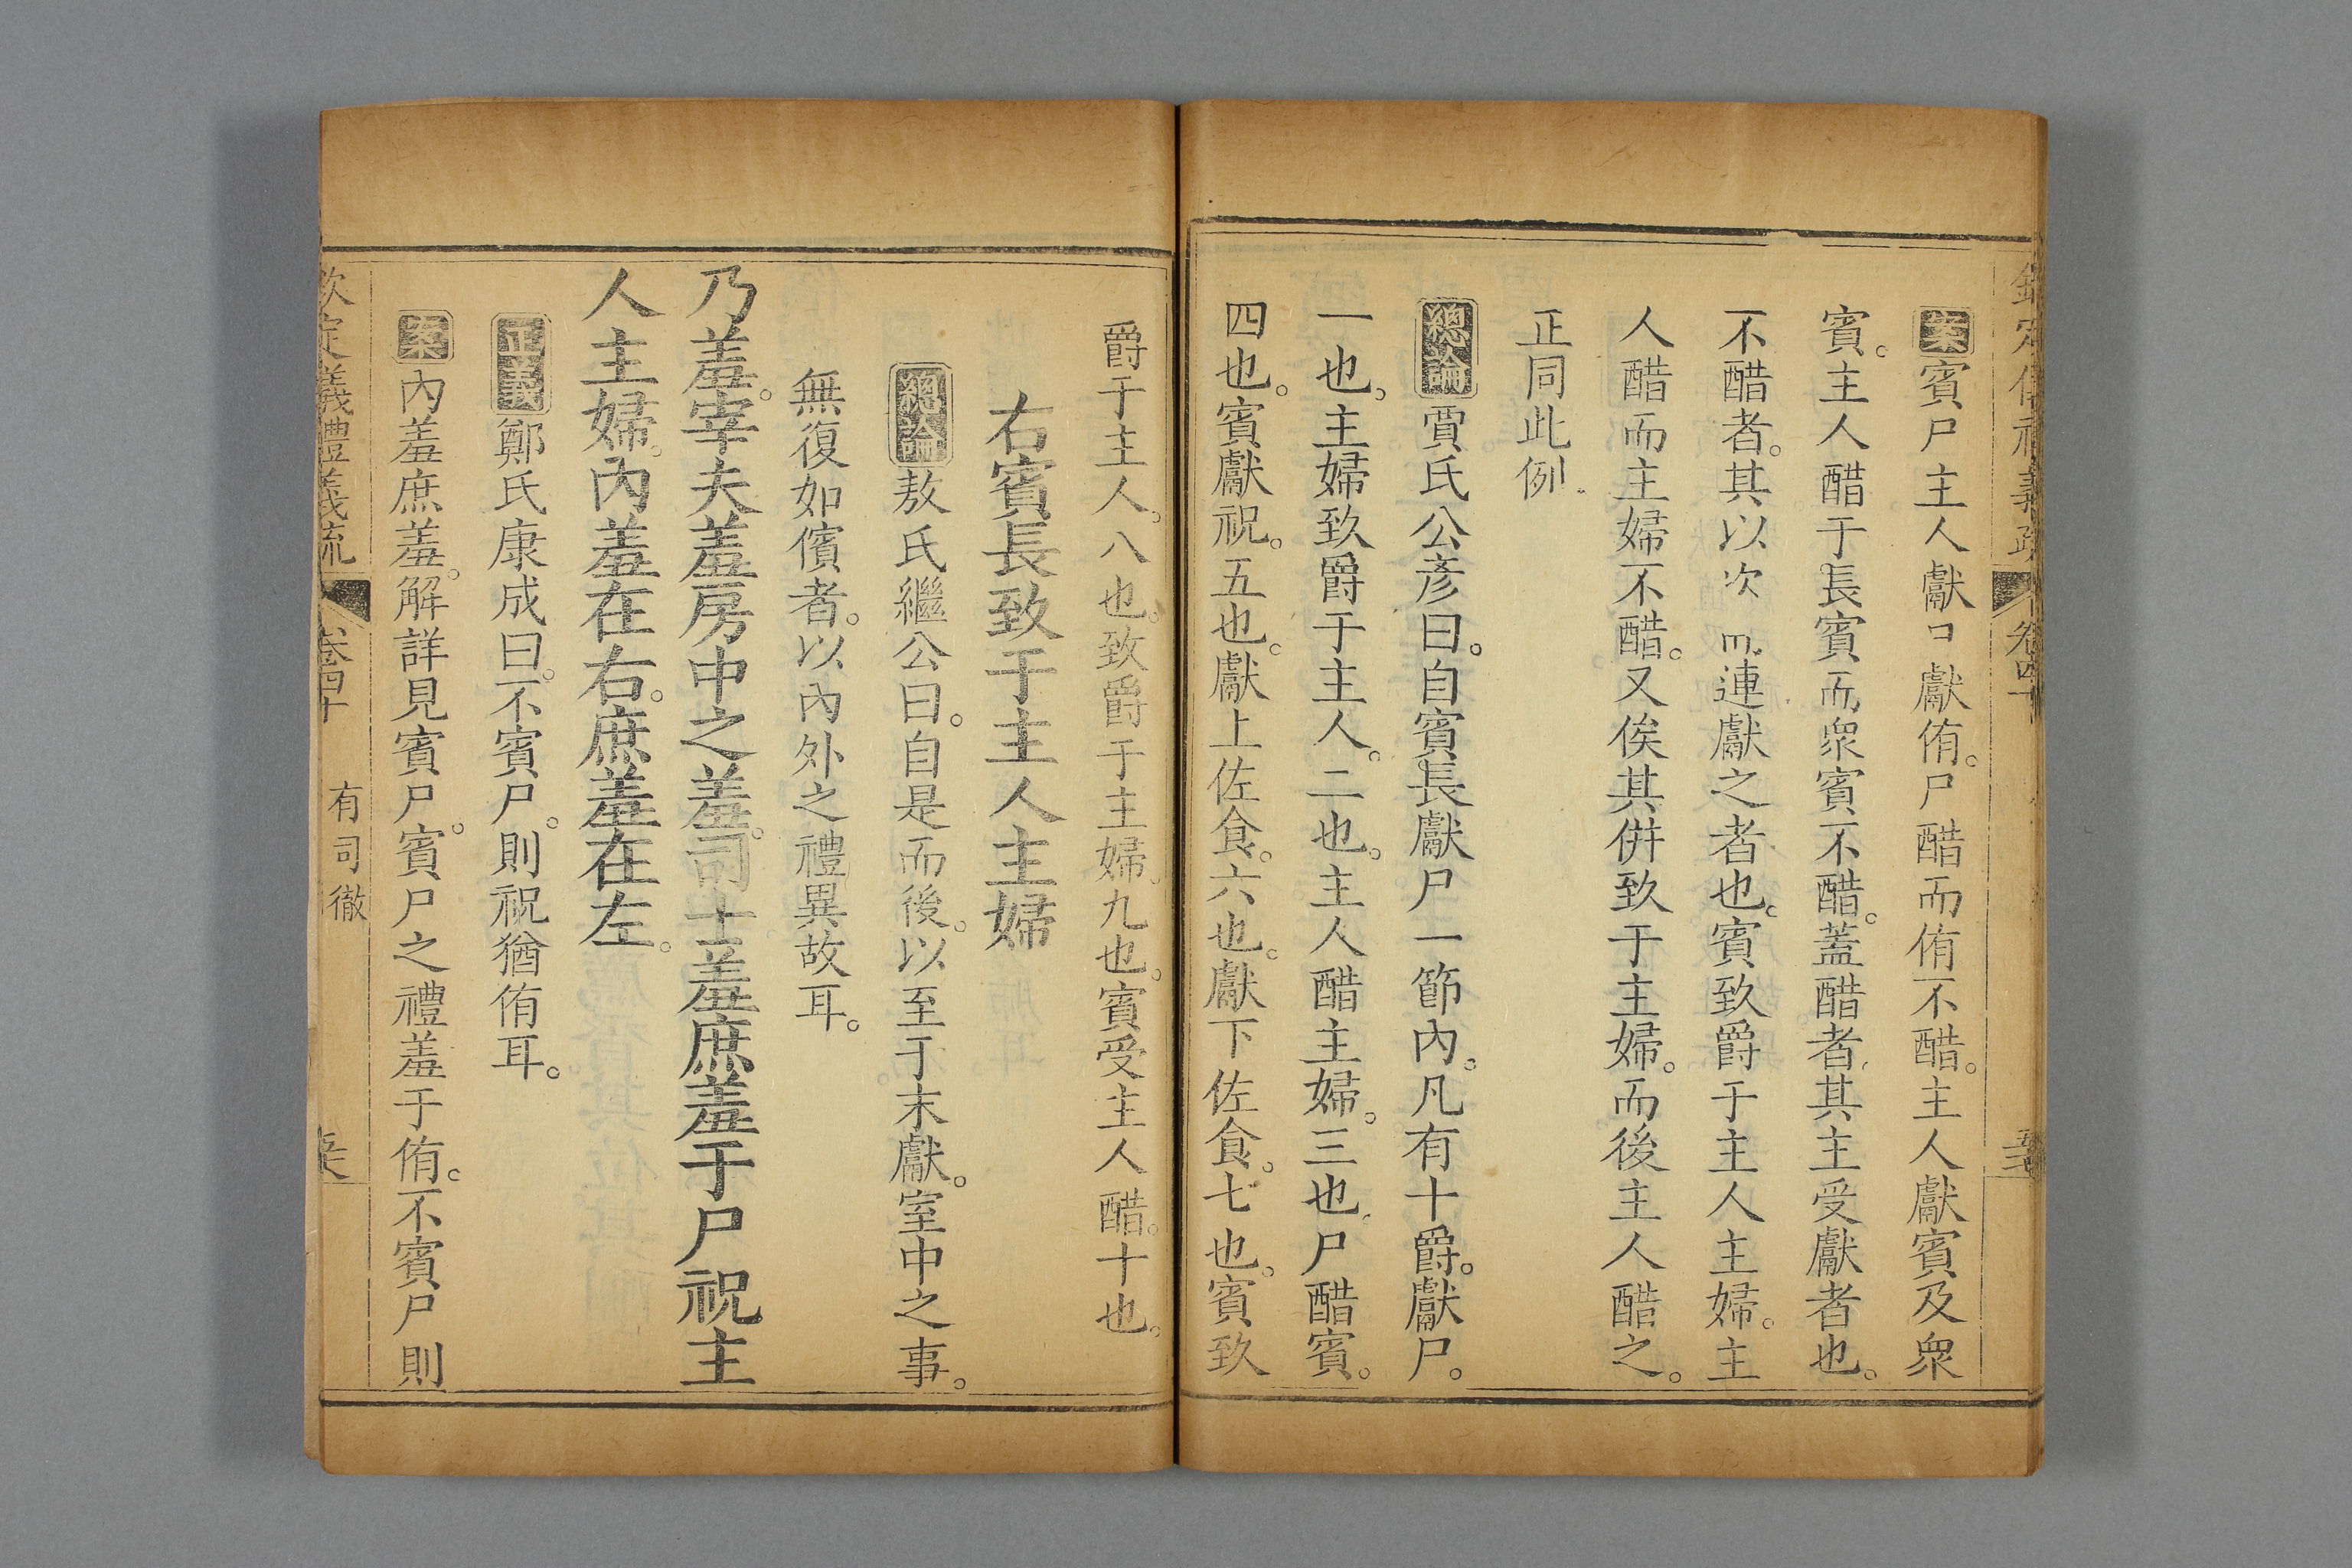 案賓尸主人獻尸獻侑。尸醋而侑不醋。主人獻賓及衆
賓。主人醋于長賓而衆賓不醋。蓋醋者其主受獻者也。
不醋者。其以次而連獻之者也。賓致爵于主人主婦。主
人醋而主婦不醋。又俟其倂致于主婦。而後主人醋之。
正同此例。
總論賈氏公彥曰。自賓長獻尸一節內。凡有十爵。獻尸。
一也。主婦致爵于主人。二也。主人醋主婦。三也。尸醋賓。
四也。賓獻祝。五也。獻上佐食。六也。獻下佐食。七也。賓致
爵于主人。八也。致爵于主婦。九也。賓受主人醋。十也。
右賓長致于主人主婦
總論敖氏繼公曰。自是而後。以至于末獻。室中之事。
無復如儐者。以內外之禮異故耳。
乃羞。宰夫羞房中之羞。司士羞庶羞于尸祝主
人主婦。內羞在右。庶羞在左。
正義鄭氏康成曰。不賓尸。則祝猶侑耳。
案內羞庶羞。解詳見賓尸。賓尸之禮羞于侑。不賓尸則
欽定儀禮義疏 卷四十 有司徹